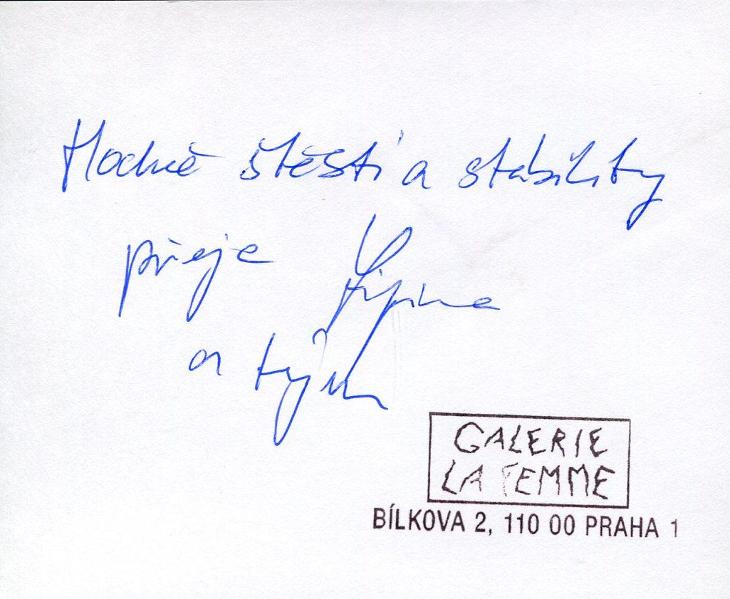 Hodně štěstí a stability
přeje
a tým
GALERIE
LA FEMME
BÍLKOVA 2, 110 00 PRAHA 1